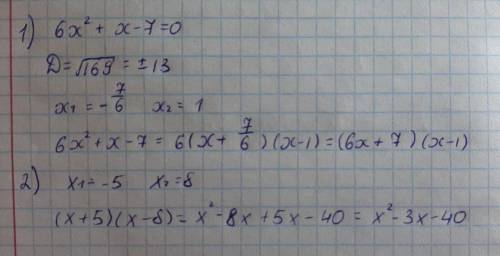 1) 6x² + x - 7 = 0
D = √169 = ± 13
x₁ = - 7/6 x₂ = 1
6x² + x - 7 = 6(x + 7/6)(x - 1) = (6x + 7)(x - 1)
2) x₁ = -5 x₂ = 8
(x + 5)(x - 8) = x² - 8x + 5x - 40 = x² - 3x - 40